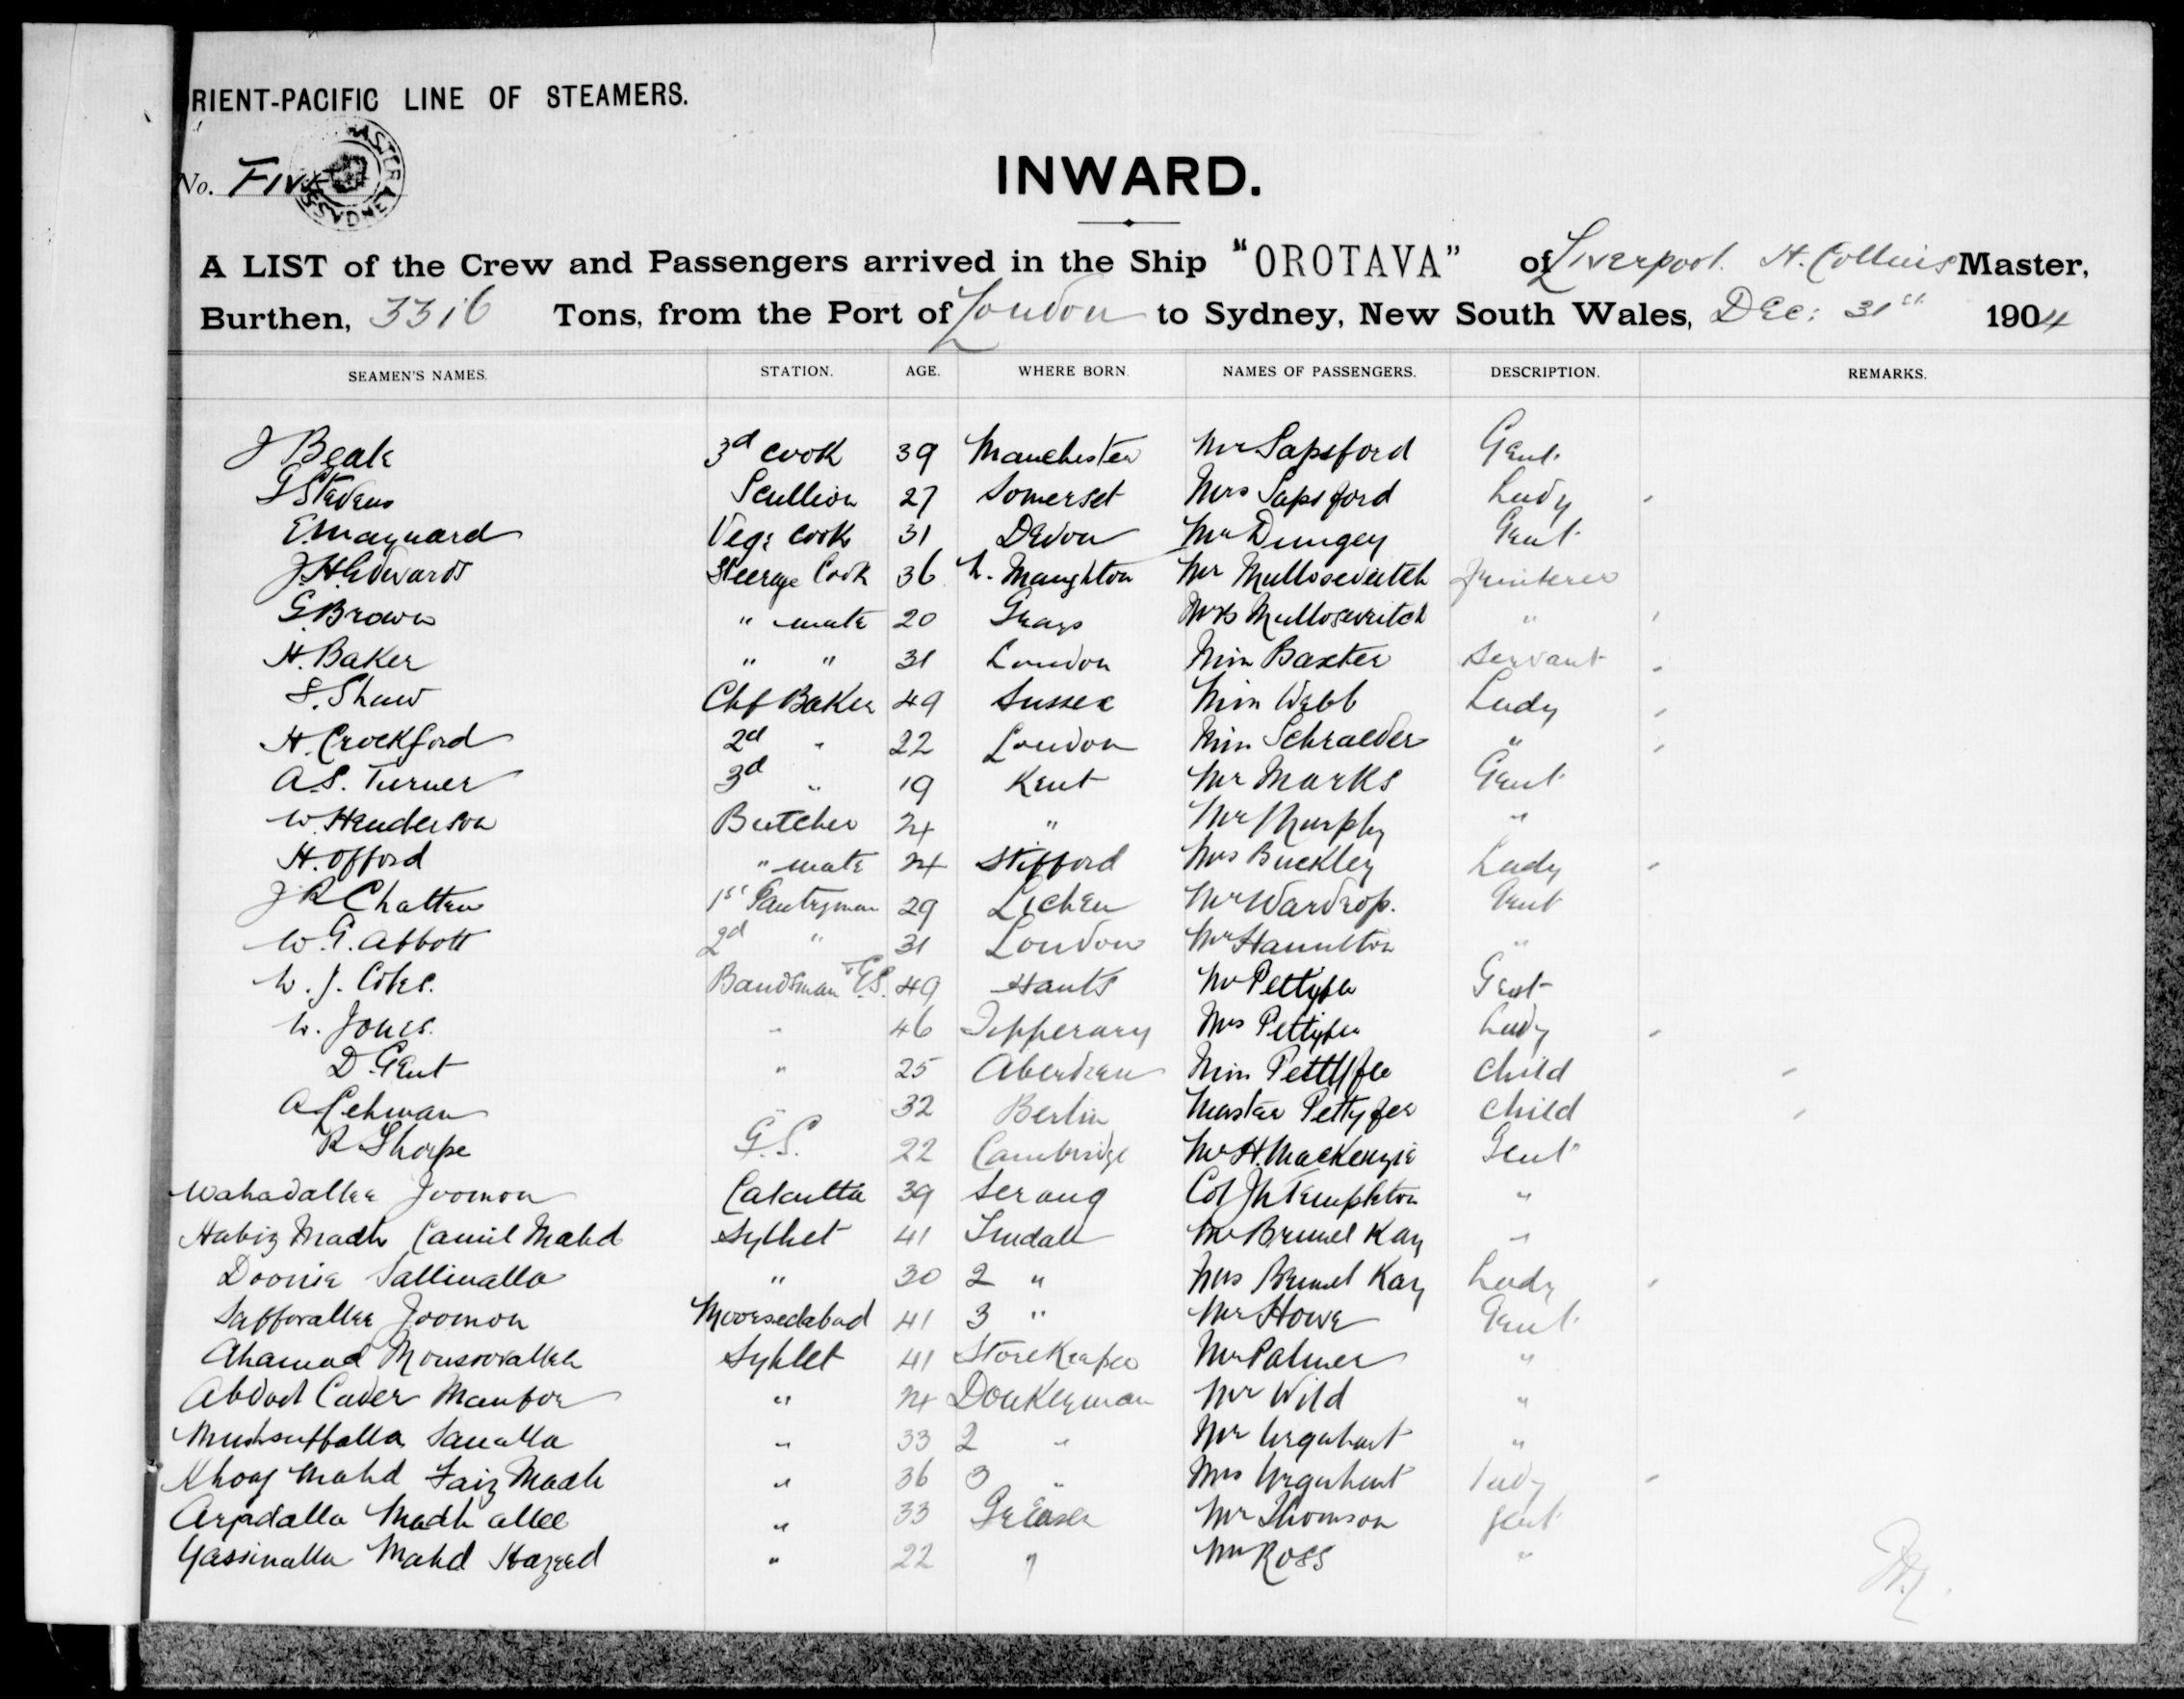 RIENT-PACIFIC LINE OF STEAMERS.
No. Five
INWARD.
A LIST of the Crew and Passengers arrived in the Ship "OROTAVA" of Liverpool. H. Collins Master,
Burthen, 3316 Tons, from the Port of London to Sydney, New South Wales, Dec: 31st 1904
SEAMEN'S NAMES. STATION. AGE. WHERE BORN. NAMES OF PASSENGERS. DESCRIPTION. REMARKS.
J Beale 3d Cook 39 Manchester Mr Sapsford Gent.
G Stevens Scullion 27 Somerset Mrs Sapsford Lady
E Maynard Veg: Cook 31 Devon Mr Dungey Gent.
J. H. Edwards Steerage Cook 36 Mr
G. Brown " mate 20 Grays Mrs "
H. Baker " " 31 London Miss Baxter Servant
S. Shaw Chf Baker 49 Sussex Miss Webb Lady
H. Crockford 2d " 22 London Miss Schraeder "
A. S. Turner 3d " 19 Kent Mr Marks Gent
W. Henderson Butcher 24 " Mr Murphy "
H. Offord " mate 24 Stifford Mrs Buckley Lady
J R Chatten 1st Pantryman 29 Mr Wardrop. Gent
W. G. Abbott 2d " 31 London Mr Hamilton "
W. J. Bandsman & G.S. 49 Hants Mr Pettyfer Gent
W. Jones. " 46 Tipperary Mrs Pettyfer Lady
D. Gent " 25 Aberdeen Miss Pettyfer Child
A Lehman " 32 Berlin Master Pettyfer Child
R Thorpe G.S. 22 Cambridge Mr H. MacKenzie Gent
Wahadallee Joomon Calcutta 39 Serang Col Templeton "
Habiz Madh Camil Mahd Sylhet 41 Tindall Mr Brunel Kay "
Doonia Sallimalla " 30 2 " Mrs Brunel Kay Lady
Saffarallee Joomon Moorsedabad 41 3 " Mr Howe Gent.
Ahamad Sylhet 41 Storekeeper Mr Palmer "
Abdool Cader " 24 Donkeyman Mr Wild "
Sanalla " 33 2 " Mr Urquhart "
Mahd Faiz Madh " 36 3 " Mrs Urquhart Lady
Madh allee " 33 Greaser Mr Thomson Gent
Yassinalla Mahd " 22 " Mr Ross "